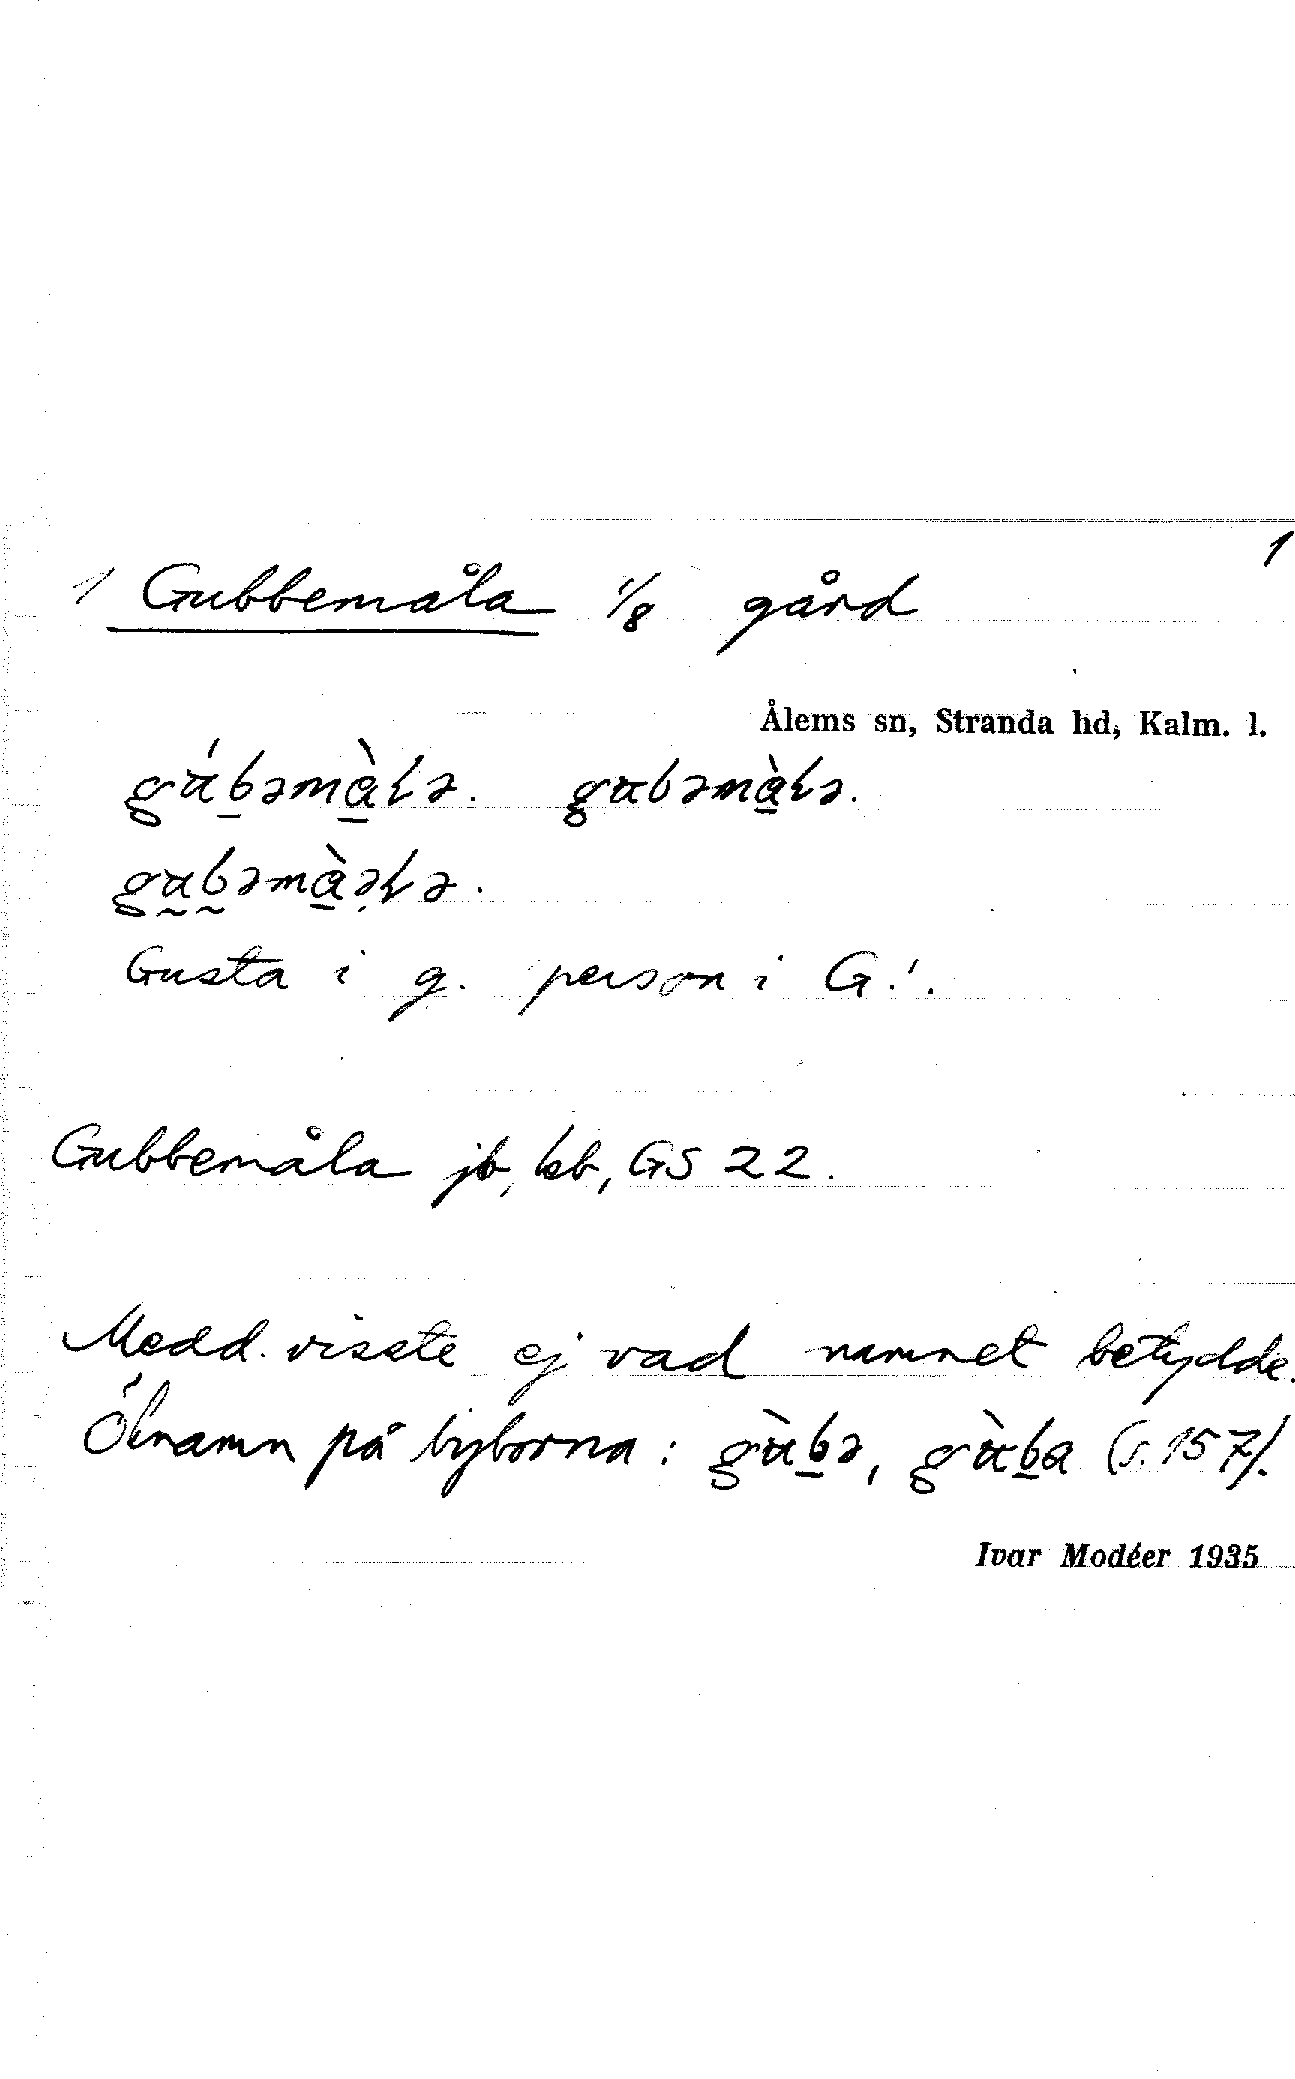 1
1 Gubbemåla 1/8 gård
Ålems sn, Stranda hd, Kalm. l.
gɑ́b̲əmɑ̲̀ɬə. gɑbəmɑ̲̀ɬə.
gɑ̰b̰əmɑ̲̀ə̣ɬə.
Gusta i g. 'person i G.'.
Gubbemåla jb, kb, GS 22.
Medd. visste ej vad namnet betydde.
Öknamn på byborna: gɑ̀b̲ə, gɑ̀b̲a (s. 157).
Ivar Modéer 1935